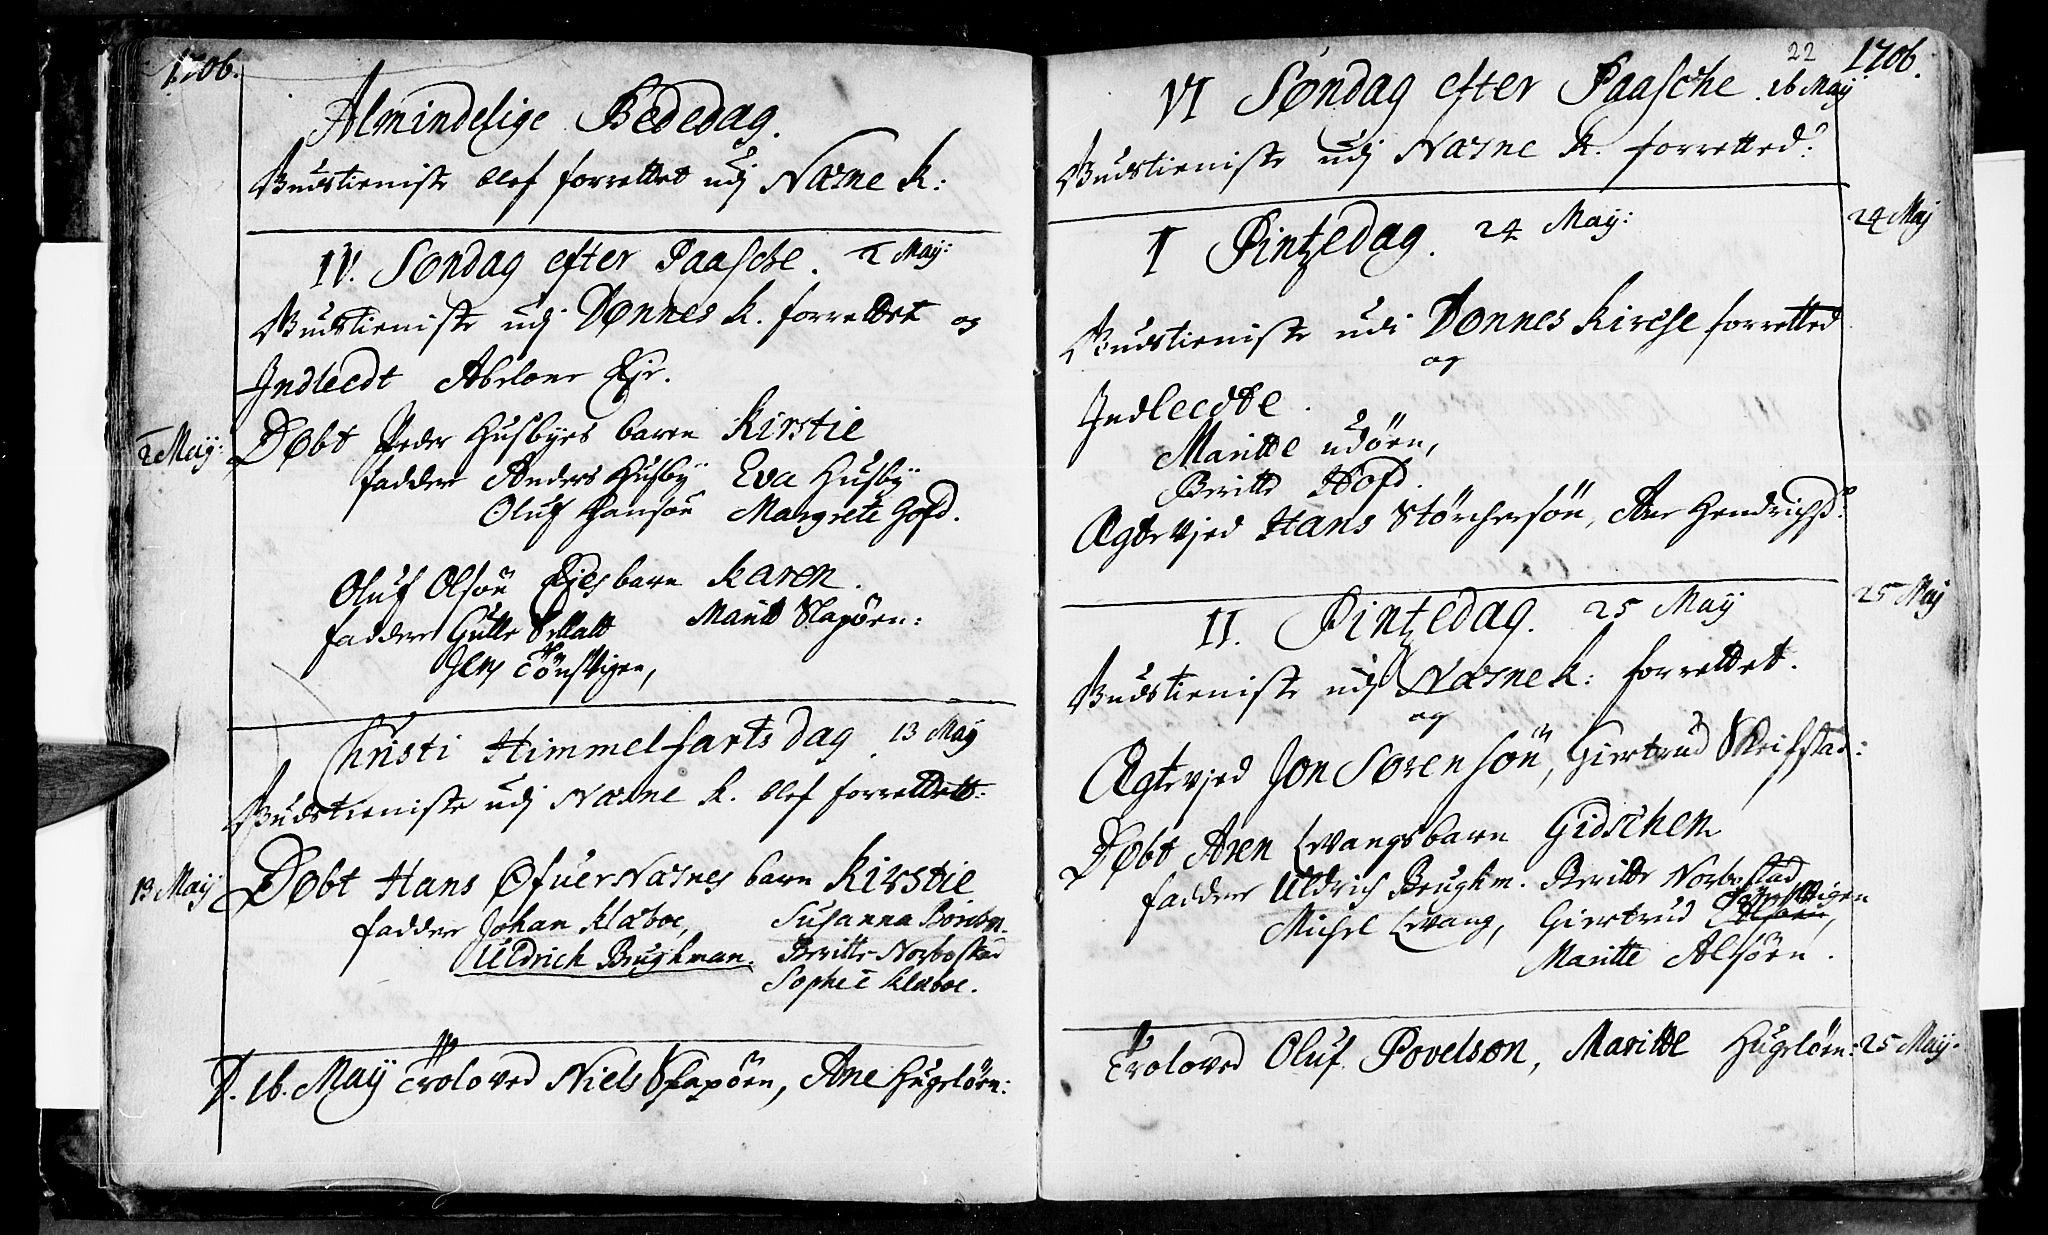 1706.
Almindelige Bededag.
Gudstieniste blef forrettet udj Næsne K:
IV. Søndag efter Paasche. 2 Maÿ:
Gudstieniste udj Dønnes K. forrettet og
Indleedt Abelone Eje.
2 Maÿ: Døbt Peder Husbyes barn Kirstie
faddere Anders Husby Eva Husby
Oluf Hansøn Margrete Hofd.
Oluf Olsøn Ejes barn Karen.
faddere Gulle Marit Slapøen:
Jens Tønsvigen,
Christi Himmelfarts dag. 13 Maÿ
Gudstieniste udj Næsne K. blef forrettett:
13 Maÿ Døbt Hans Øfuer Næsnes barn Kirstie
faddere Johan Klæboe, Susanna
Uldrich Brughman. Beritte Norbostad
Sophie Klæboe.
D. 16. Maÿ Troloved Niels Slapøen, Ane Hugeløen:
22 1706.
VI Søndag efter Paasche. 16 Maÿ
Gudstieniste udj Næsne K. forretted:
I Pintzedag. 24 Maÿ: 24 Maj
Gudstieniste udi Dønnes Kirche forretted
og
Indleedde.
Maritte udøen,
Beritte Hofd.
Ægtevjed Hans Størchersøn, Ane Hendrichsd:
II. Pintzedag. 25 Maÿ 25 Maÿ
Gudstieniste udj Næsne k: forrettet.
og
Ægtevjed Jon Sørensøn, Giertrud
Døbt Aren Levangs barn Gidschen
faddere Uldrich Brughm. Beritte Norbostad
Michel Levang, Giertrud Tønsvigen
Maritte Alsøen.
Troloved Oluf Povelsøn, Maritte Hugeløen: 25 Maÿ.